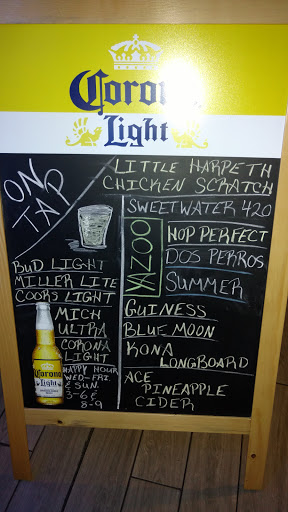 Corona
Light
ON
TAP
LITTLE HARPETH
CHICKEN SCRATCH
SWEETWATER 420
YAZOO
HOP PERFECT
DOS PERROS
SUMMER
BUD LIGHT
MILLER LITE
COORS LIGHT
MICH
ULTRA
CORONA
LIGHT
HAPPY HOUR
WED-FRI.
& SUN.
3-6 &
8-9
GUINESS
BLUE MOON
KONA
LONGBOARD
ACE
PINEAPPLE
CIDER
Corona
Light